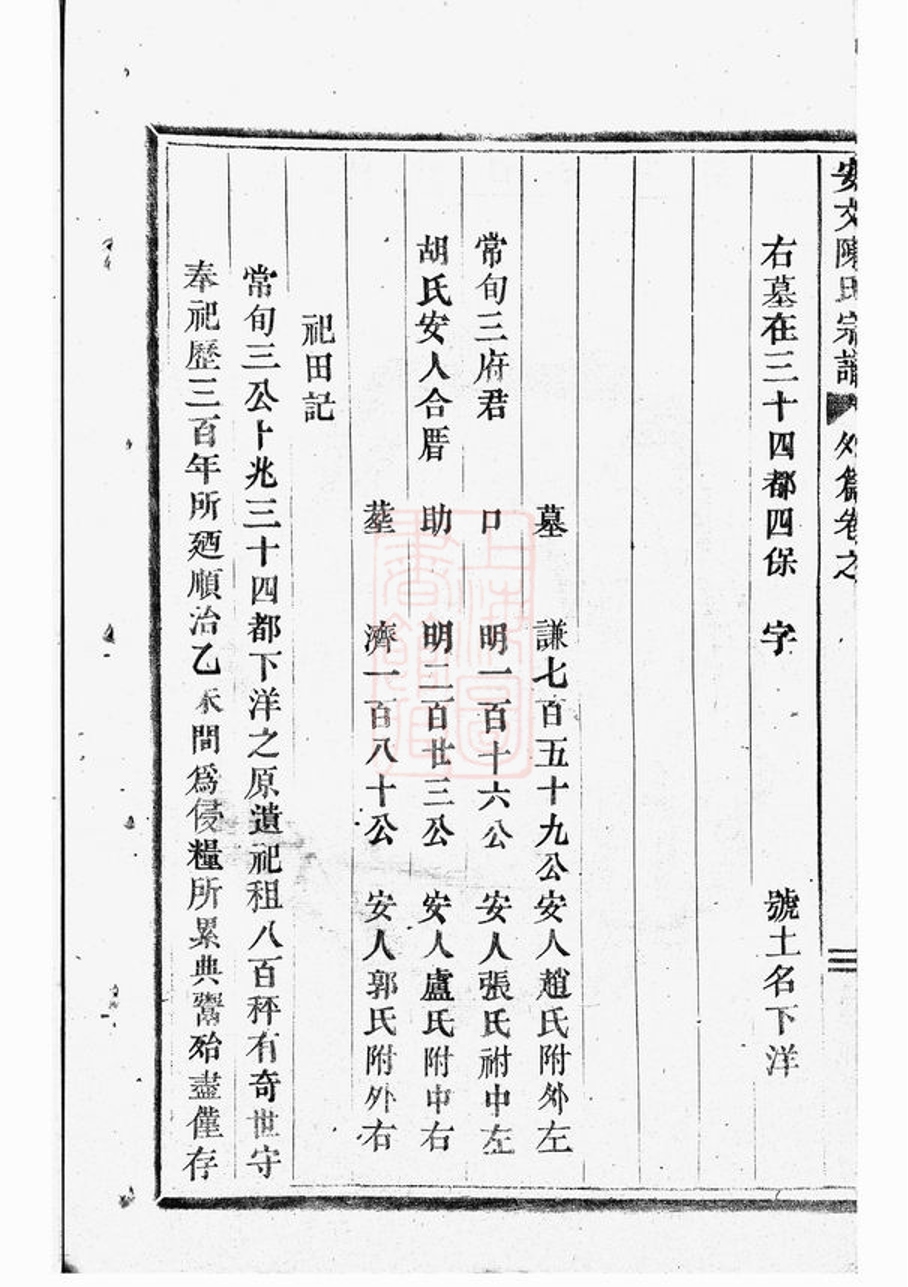 安文陳氏宗譜 外篇卷之 二
右墓在三十四都四保 字 號土名下洋
墓 謙七百五十九公安人趙氏附外左
常旬三府君 口 明一百十六公 安人張氏祔中左
胡氏安人合厝 助 明二百廿三公 安人盧氏附中右
塟 濟一百八十公 安人郭氏附外右
祀田記
常旬三公卜兆三十四都下洋之原遺祀租八百秤有奇世守
奉祀歷三百年所廼順治乙未間爲侵糧所累典鬻殆盡僅存
上海圖書館藏